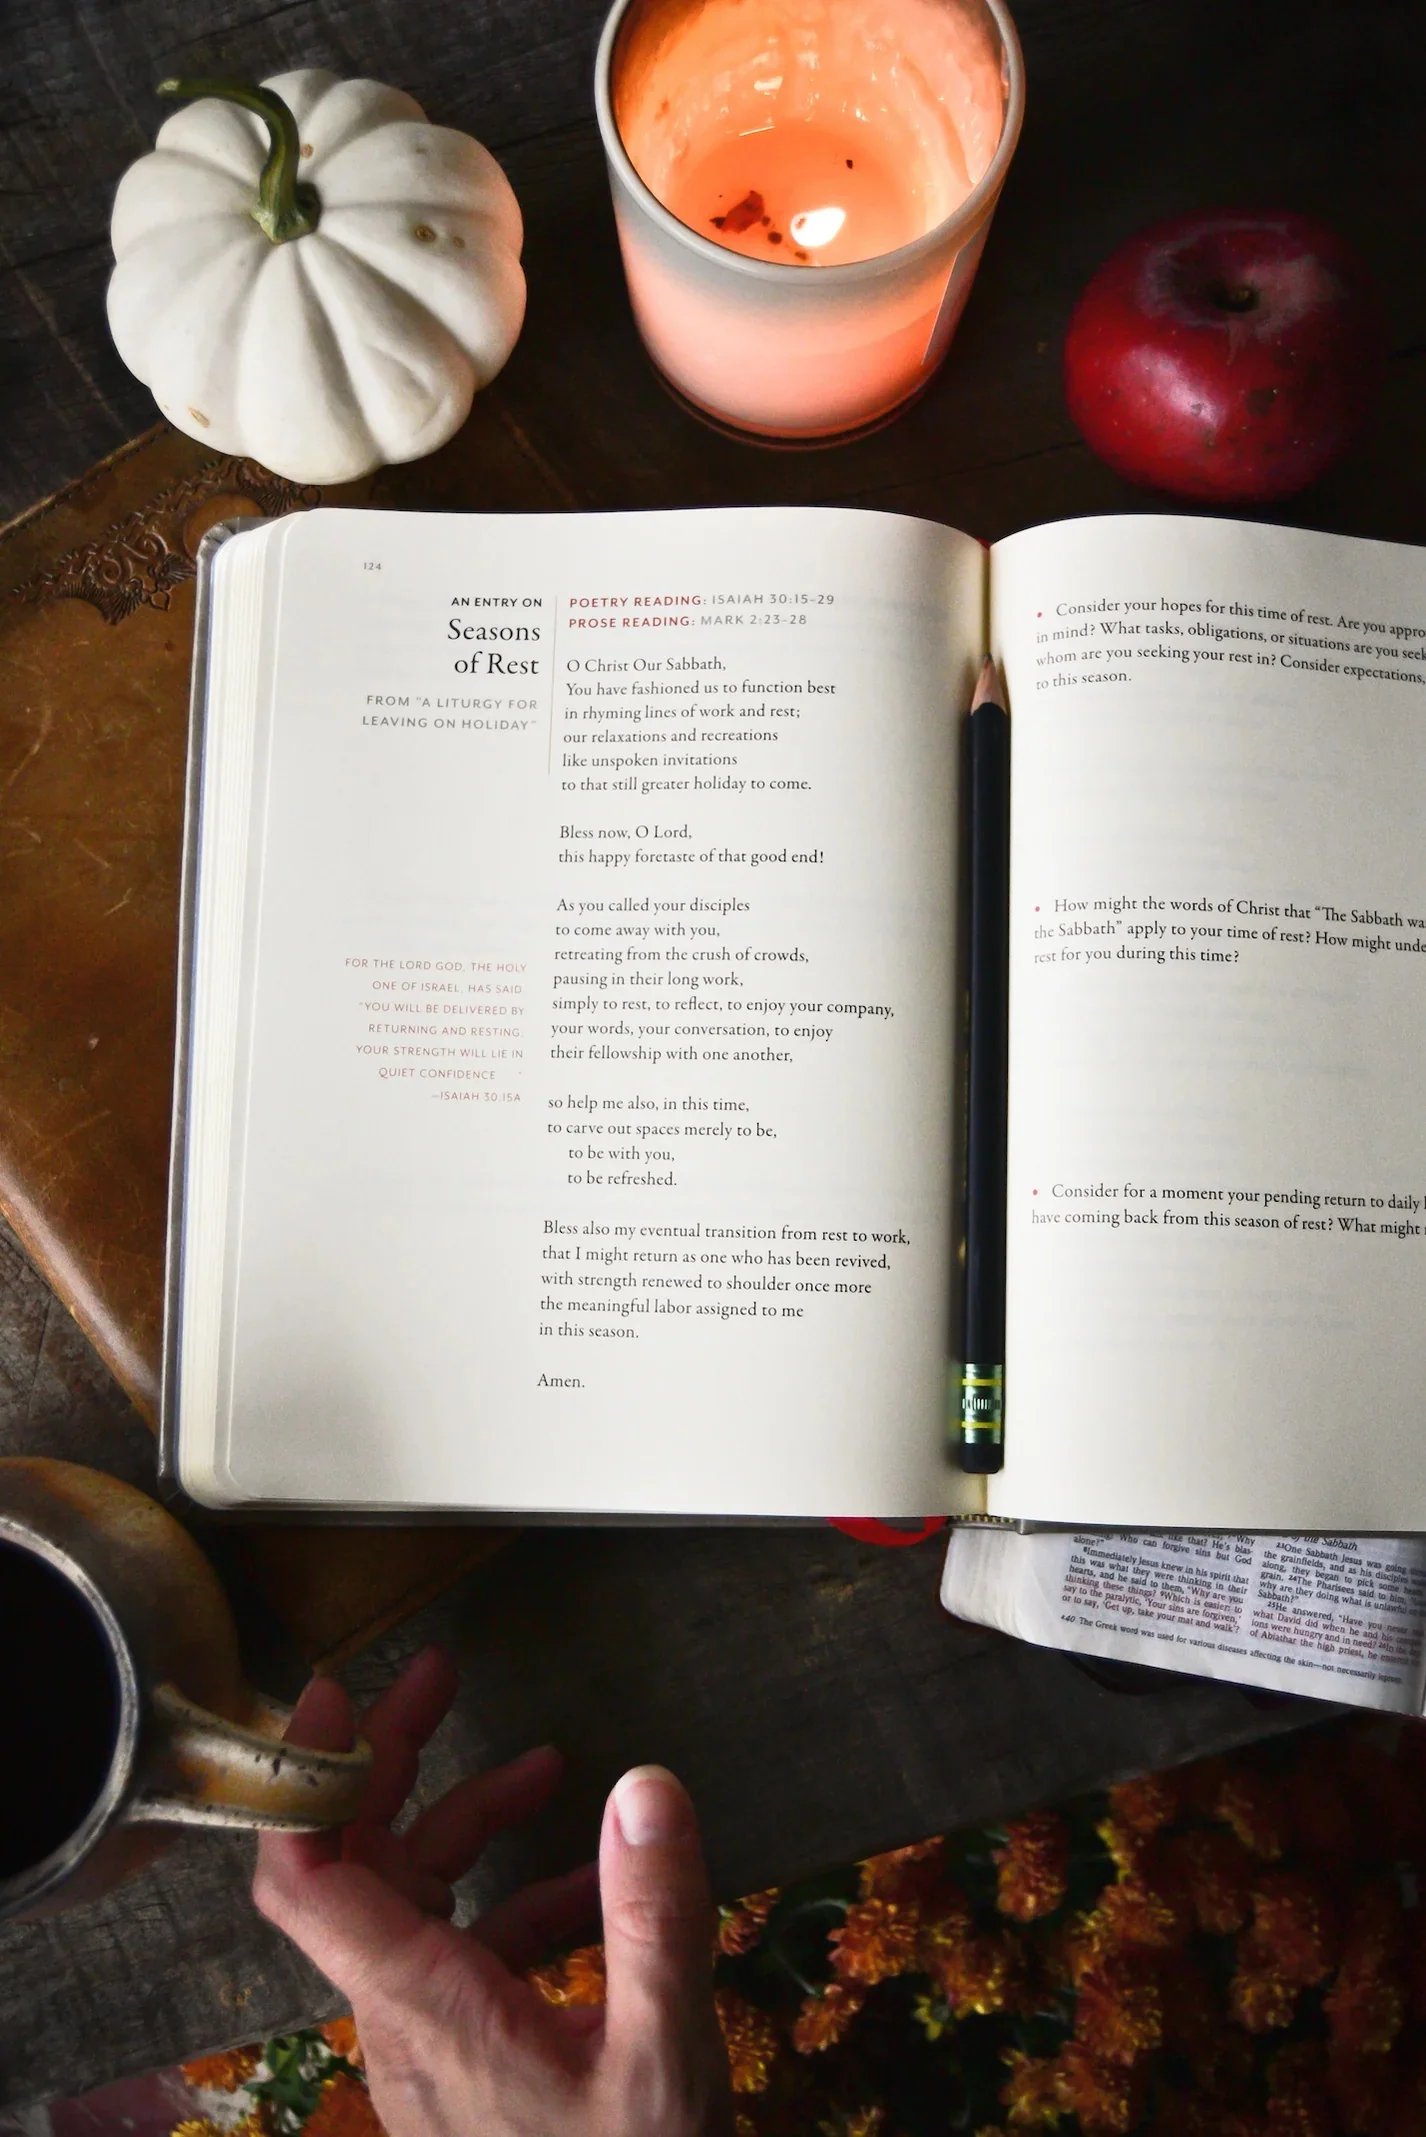 124
AN ENTRY ON
Seasons
of Rest
FROM "A LITURGY FOR
LEAVING ON HOLIDAY"
POETRY READING: ISAIAH 30:15–29
PROSE READING: MARK 2:23–28
O Christ Our Sabbath,
You have fashioned us to function best
in rhyming lines of work and rest;
our relaxations and recreations
like unspoken invitations
to that still greater holiday to come.
Bless now, O Lord,
this happy foretaste of that good end!
As you called your disciples
to come away with you,
retreating from the crush of crowds,
pausing in their long work,
simply to rest, to reflect, to enjoy your company,
your words, your conversation, to enjoy
their fellowship with one another,
so help me also, in this time,
to carve out spaces merely to be,
to be with you,
to be refreshed.
Bless also my eventual transition from rest to work,
that I might return as one who has been revived,
with strength renewed to shoulder once more
the meaningful labor assigned to me
in this season.
Amen.
FOR THE LORD GOD, THE HOLY
ONE OF ISRAEL, HAS SAID
"YOU WILL BE DELIVERED BY
RETURNING AND RESTING;
YOUR STRENGTH WILL LIE IN
QUIET CONFIDENCE "
—ISAIAH 30:15A
• Consider your hopes for this time of rest. Are you
in mind? What tasks, obligations, or situations are you
whom are you seeking your rest in? Consider expectations,
to this season.
• How might the words of Christ that “The Sabbath
the Sabbath” apply to your time of rest? How might
rest for you during this time?
• Consider for a moment your pending return to daily
have coming back from this season of rest? What might
like that? He's blas-
alone?" Who can forgive sins but God
8Immediately Jesus knew in his spirit that
this was what they were thinking in their
hearts, and he said to them, "Why are you
thinking these things? 9Which is easier: to
say to the paralytic, 'Your sins are forgiven,'
or to say, 'Get up, take your mat and walk'?
of the Sabbath
23One Sabbath Jesus was going
the grainfields, and as his disciples
along, they began to pick some
grain. 24The Pharisees said to him,
why are they doing what is unlawful
Sabbath?"
25He answered, "Have you never
what David did when he and his
ions were hungry and in need? 26In
of Abiathar the high priest, he entered
a40 The Greek word was used for various diseases affecting the skin—not necessarily leprosy.